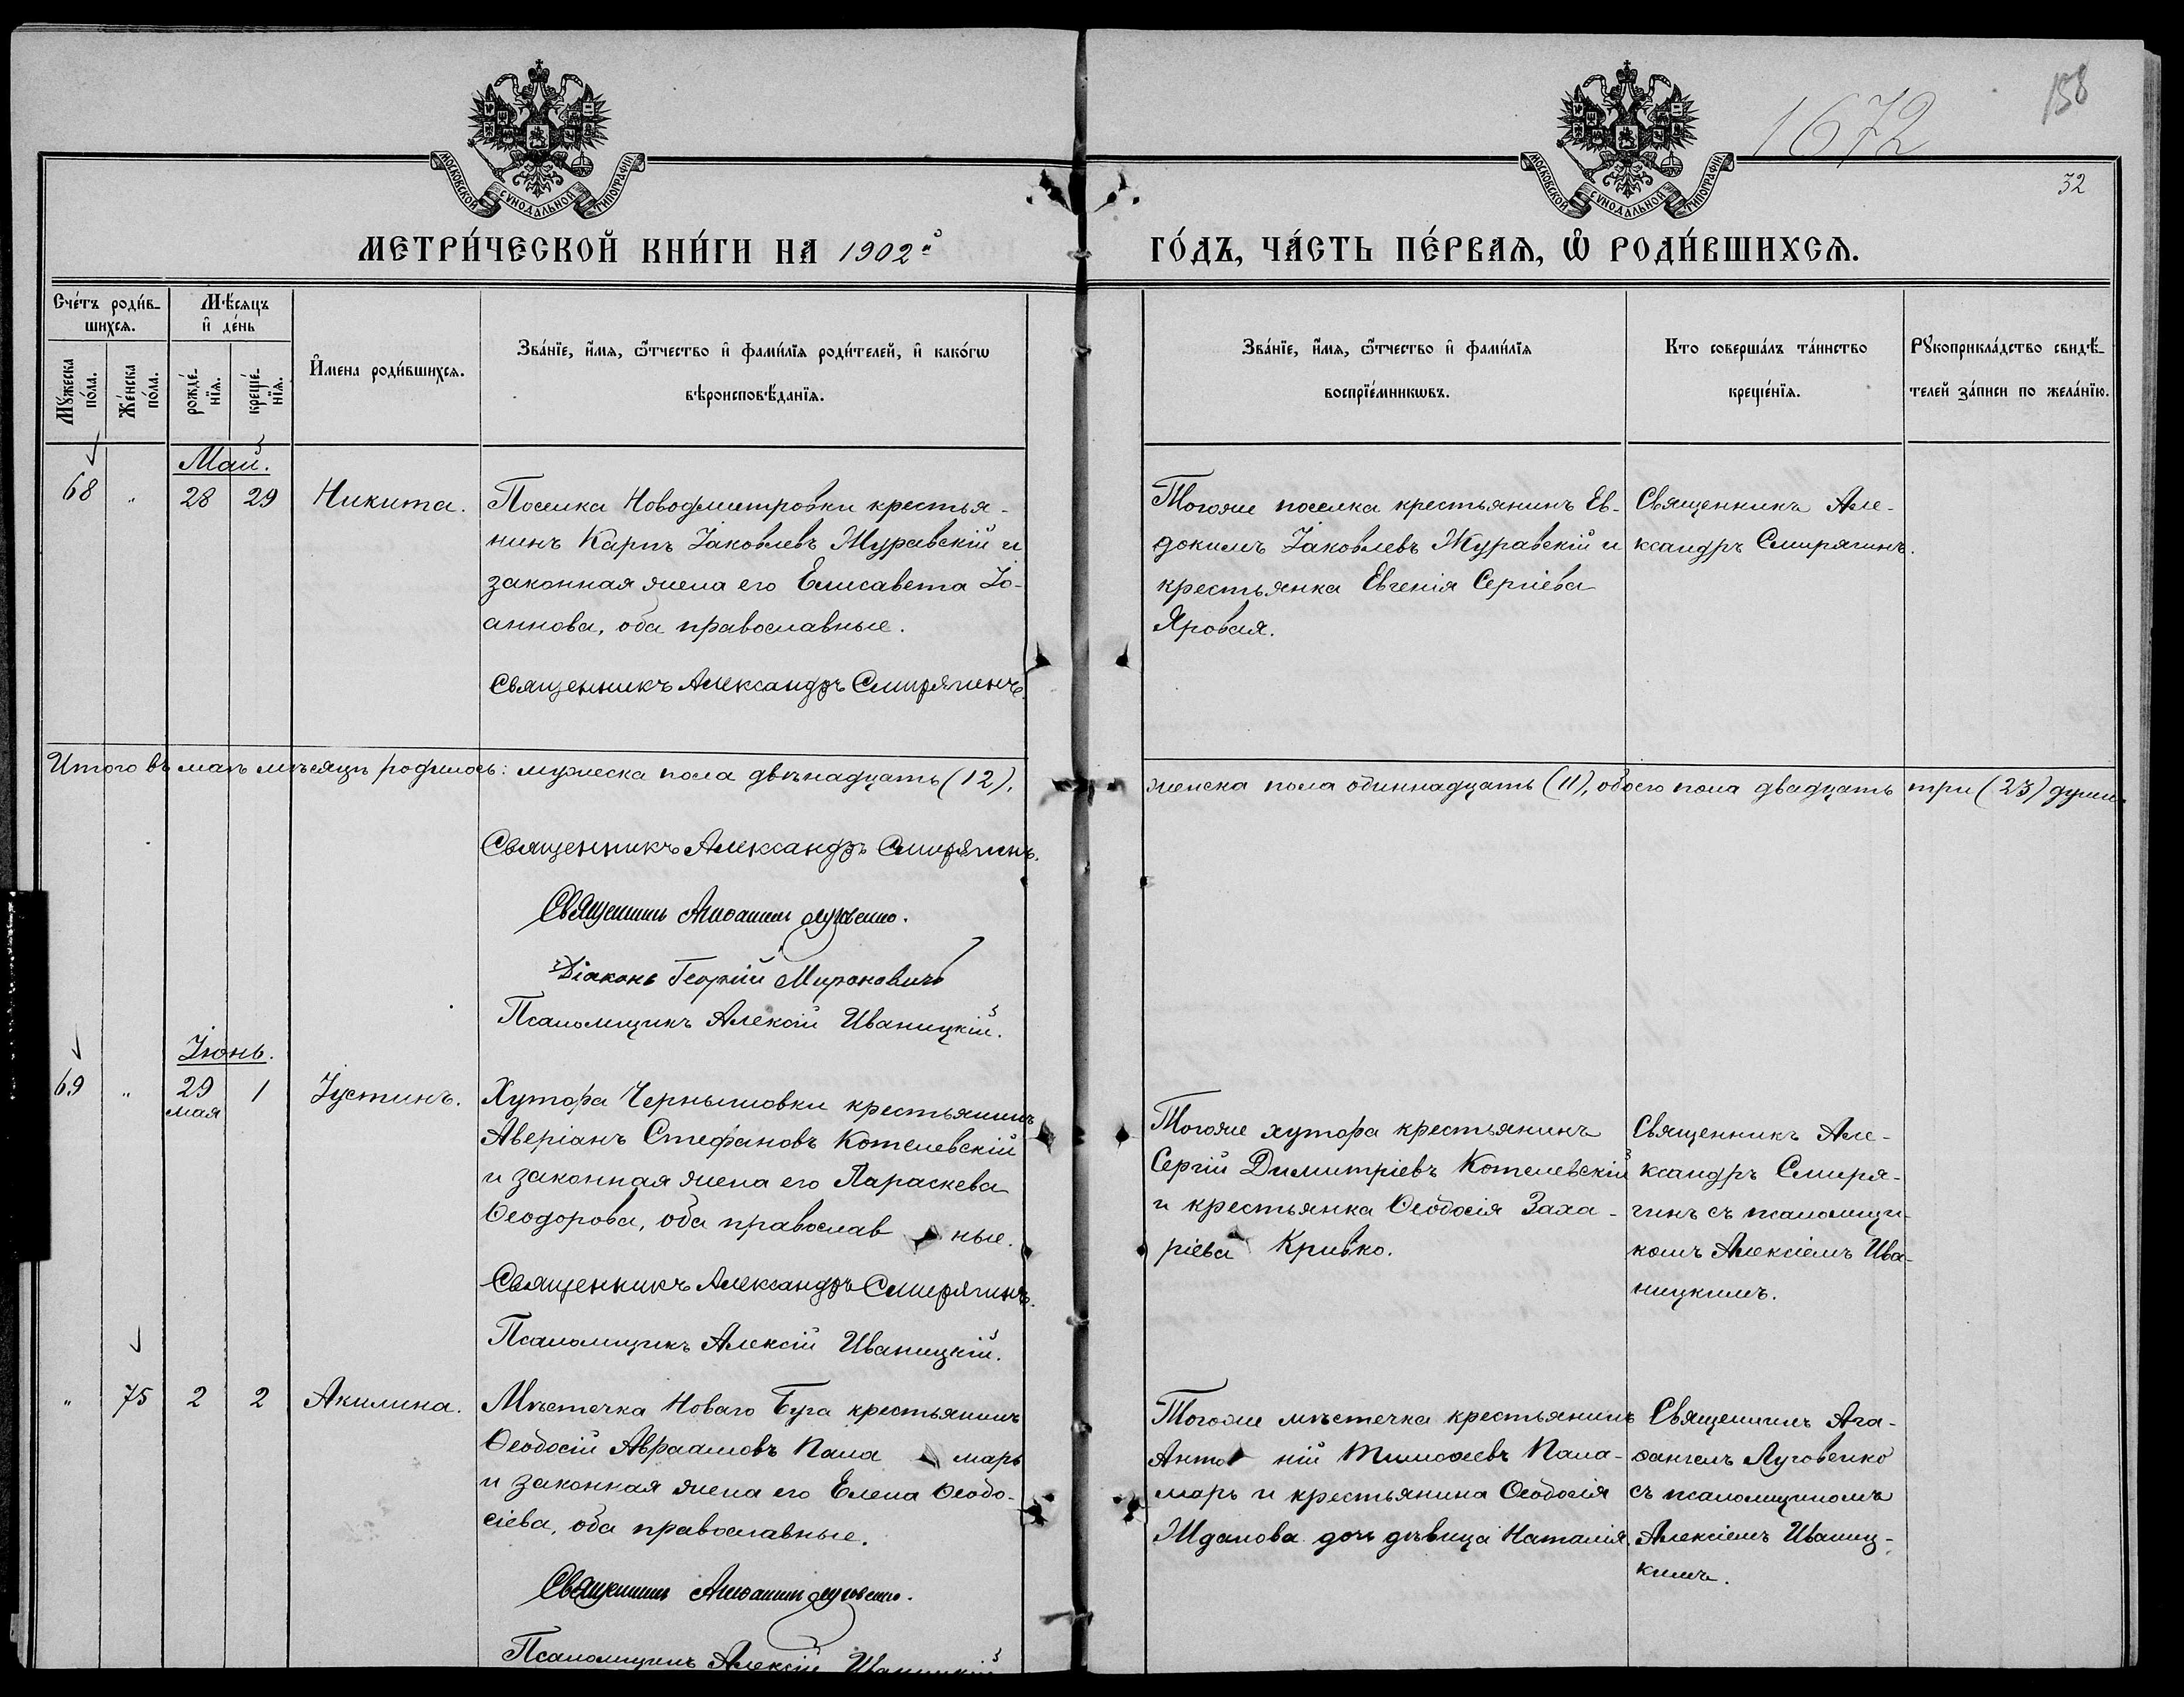 158
1672
32
МОСКОВСКОЙ СѴНОДАЛЬНОЙ ТИПОГРАФІИ
МОСКОВСКОЙ СѴНОДАЛЬНОЙ ТИПОГРАФІИ
МЕТРИ́ЧЕСКОЙ КНИ́ГИ НА 1902й ГО́ДЪ, ЧА́СТЬ ПЕ́РВАѦ, Ѡ҆ РОДИ́ВШИХСѦ.
Сче́тъ роди́в-
шихсѧ.
Мѣ́сѧцъ
и҆ де́нь
Мꙋ́жеска
по́ла.
Же́нска
по́ла.
рожде́-
нїѧ.
креще́-
нїѧ.
И҆мена роди́вшихсѧ.
Зва́нїе, и҆́мѧ, ѻ҆́тчество и҆ фами́лїѧ роди́телей, и҆ како́гѡ
вѣроисповѣ́данїѧ.
Зва́нїе, и҆́мѧ, ѻ҆́тчество и҆ фами́лїѧ
воспрїе́мникѡвъ.
Кто соверша́лъ та́инство
креще́нїѧ.
Рꙋкоприкла́дство свидѣ́-
телей за́писи по жела́нїю.
Май.
68 " 28 29 Никита.
Поселка Новодмитровки крестья-
нинъ Карпъ Іаковлевъ Журавскій и
законная жена его Елисавета Іо-
аннова, оба православные.
Священникъ Александръ Смирягинъ.
Тогоже поселка крестьянинъ Ев-
докимъ Іаковлевъ Журавскій и
крестьянка Евгенія Сергіева
Яровая.
Священникъ Але-
ксандръ Смирягинъ.
Итого въ маѣ мѣсяцѣ родилось: мужеска пола двѣнадцать (12), женска пола одиннадцать (11), обоего пола двадцать три (23) души.
Священникъ Александръ Смирягинъ.
Священникъ Агаѳангелъ Луговенко.
Діаконъ Георгій Мироновичъ
Псаломщикъ Алексій Иваницкій.
Іюнь.
69 " 29 1 Іустинъ.
мая
Хутора Чернышовки крестьянинъ
Аверіанъ Стефановъ Котелевскій
и законная жена его Параскева
Ѳеодорова, оба православные.
Священникъ Александръ Смирягинъ.
Псаломщикъ Алексій Иваницкій.
Тогоже хутора крестьянинъ
Сергій Димитріевъ Котелевскій
и крестьянка Ѳеодосія Заха-
ріева Кривко.
Священникъ Але-
ксандръ Смиря-
гинъ съ псаломщи-
комъ Алексіемъ Ива-
ницкимъ.
" 75 2 2 Акилина.
Мѣстечка Новаго Буга крестьянинъ
Ѳеодосій Авраамовъ Паламарь
и законная жена его Елена Ѳеодо-
сіева, оба православные.
Священникъ Агаѳангелъ Луговенко.
Псаломщикъ Алексій Иваницкій
Тогоже мѣстечка крестьянинъ
Антоній Тимоѳеевъ Пала-
марь и крестьянина Ѳеодосія
Жданова дочь дѣвица Наталія.
Священникъ Ага-
ѳангелъ Луговенко
съ псаломщикомъ
Алексіемъ Иваниц-
кимъ.